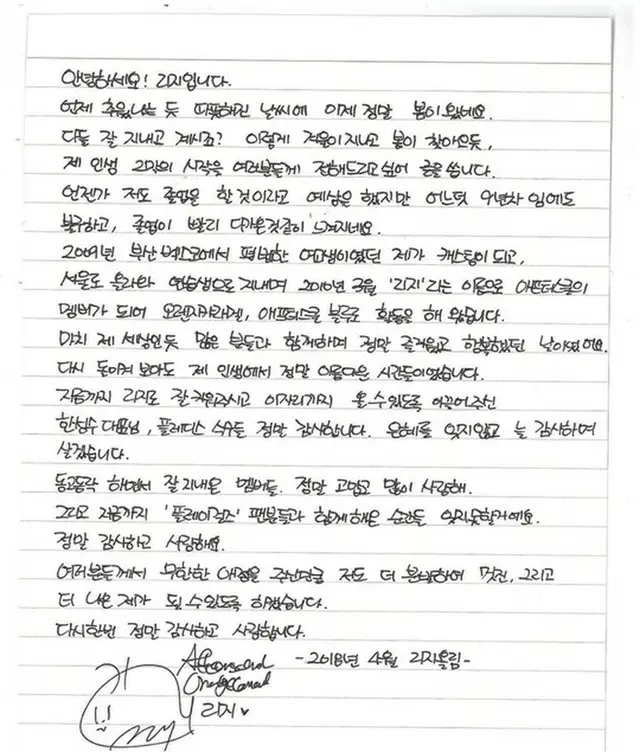 안녕하세요! 리지입니다.
언제 추웠냐는 듯 따뜻해진 날씨에 이제 정말 봄이 왔네요.
다들 잘 지내고 계시죠? 이렇게 겨울이 지나고 봄이 찾아오듯,
제 인생 2막의 시작을 여러분들께 전해드리고 싶어 글을 씁니다.
언젠가 저도 졸업을 할 것이라고 예상은 했지만 어느덧 9년차 임에도
불구하고, 졸업이 빨리 다가온것같이 느껴지네요.
2009년 부산 벡스코에서 평범한 여고생이였던 제가 캐스팅이 되고,
서울로 올라와 연습생으로 지내며 2010년 3월 '리지'라는 이름으로 애프터스쿨의
멤버가 되어 오렌지캬라멜, 애프터스쿨 블루로 활동을 해 왔습니다.
마치 제 세상인듯 많은 분들과 함께하며 정말 즐거웠고 행복했던 날이였어요.
다시 돌이켜 보아도 제 인생에서 정말 아름다운 시간들이였습니다.
지금까지 리지로 잘 키워주시고 이자리까지 올 수 있도록 이끌어주신
한성수 대표님, 플레디스 식구들 정말 감사합니다. 은혜를 잊지않고 늘 감사하며
살겠습니다.
동고동락 하면서 잘 지내온 멤버들. 정말 고맙고 많이 사랑해.
그리고 지금까지 '플레이걸즈' 팬분들과 함께 해온 순간들 잊지못할거예요.
정말 감사하고 사랑해요.
여러분들께서 무한한 애정을 주신만큼 저도 더 분발하여 멋진, 그리고
더 나은 제가 될 수 있도록 하겠습니다.
다시한번 정말 감사하고 사랑합니다.
-2018년 4월 리지올림-
리지♥